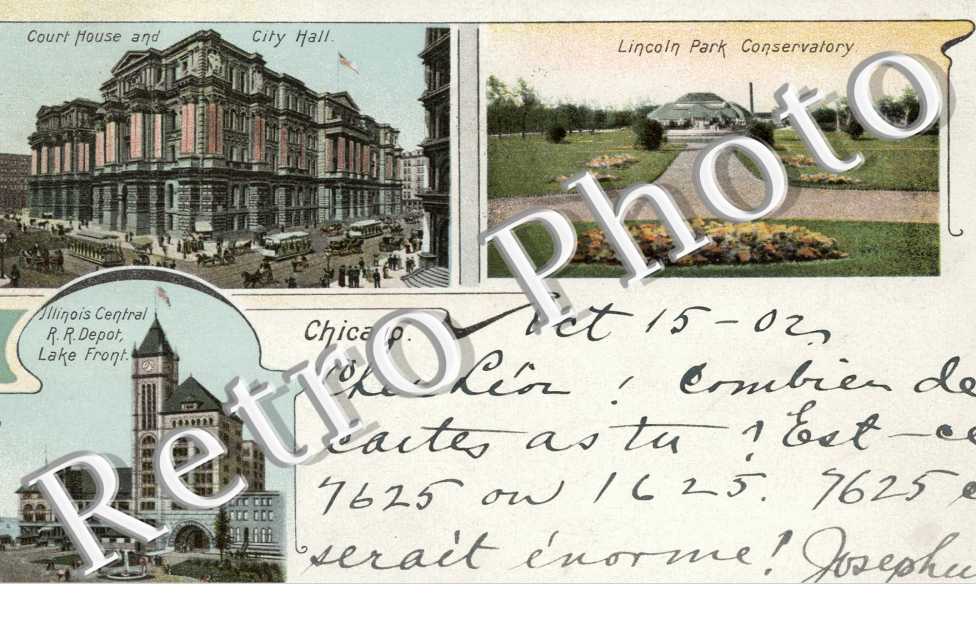 Court House and City Hall.
Lincoln Park Conservatory.
Illinois Central
R. R. Depot,
Lake Front.
Chicago.
Oct 15-02
Léon ! Combien de
cartes as tu ? Est-ce
7625 ou 1625. 7625
serait énorme! Joseph
Retro Photo